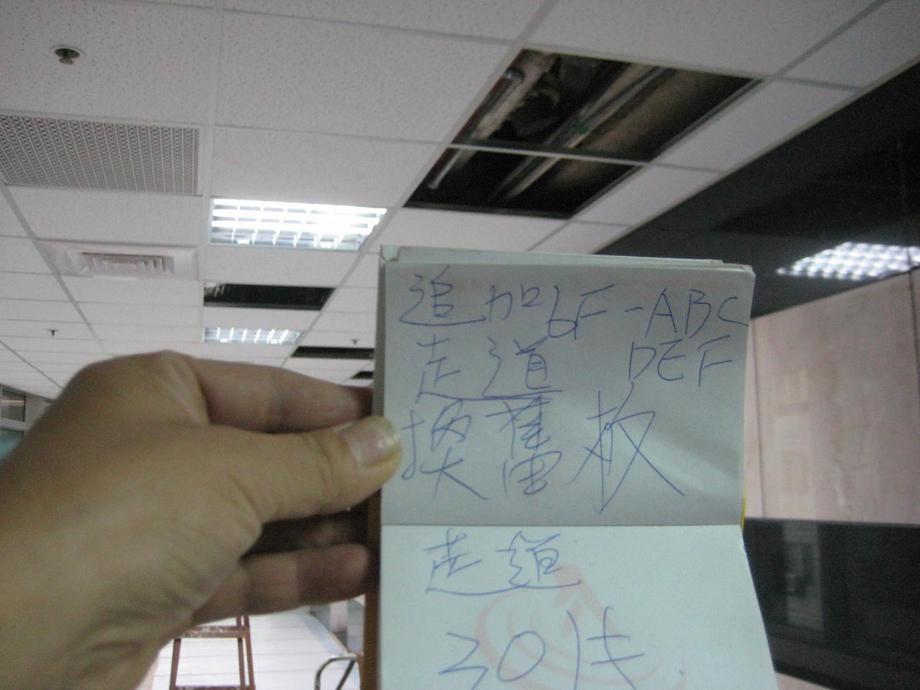 追加6F-ABC
走道 DEF
換舊板
走道
30片